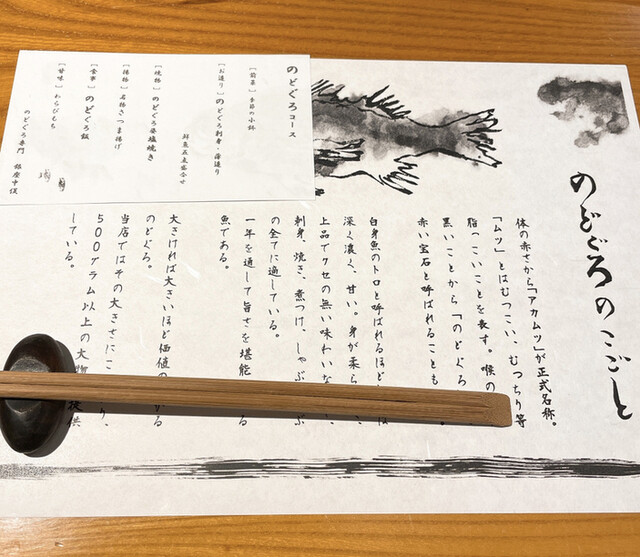 のどぐろのこごと
体の赤さから「アカムツ」が正式名称。
「ムツ」とはむつこい、むつちり等
脂っこいことを表す。喉の
黒いことから「のどぐろ
赤い宝石と呼ばれることも
白身魚のトロと呼ばれるほど
深く濃く、甘い。身が柔ら
上品でクセの無い味わい
刺身、焼き、煮つけ、しゃぶ
の全てに適している。
一年を通して旨さを堪能 る
魚である。
大きければ大きいほど価値の る
のどぐろ。
当店ではその大きさにこ り、
500グラム以上の大物 提供
している。
のどぐろコース
［前菜］季節の小鉢
［お造り］のどぐろ刺身・薄造り
鮮魚五点盛合せ
［焼物］のどぐろ姿塩焼き
［揚物］名物さつま揚げ
［食事］のどぐろ飯
［甘味］わらびもち
のどぐろ専門 銀座中俣